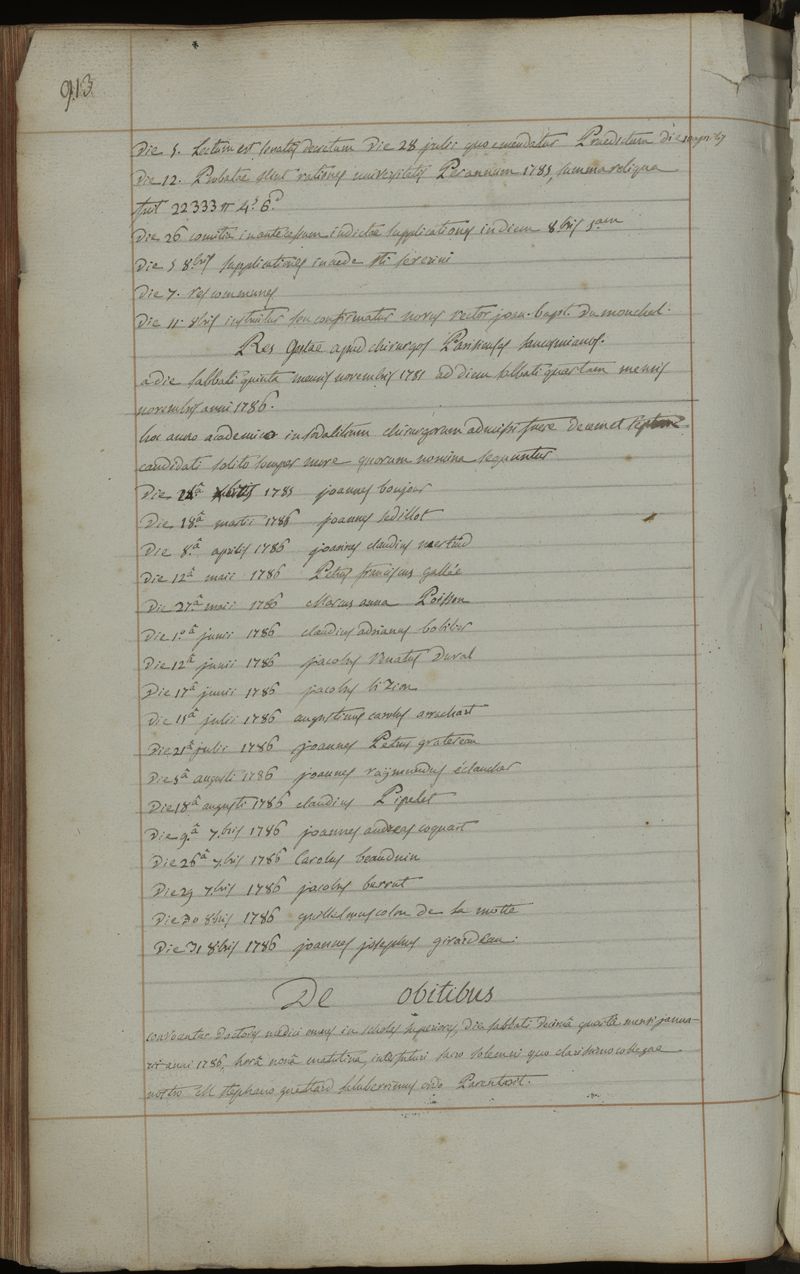 913
Die 5. Lectum est senatus decretum Die 28 julii quo emendatur Praedictum die 10 aprilis
Die 12. Probatae sunt rationes universitatis Per annum 1785, summa reliqua
fuit 22333 ₶ 4.s 6.d
Die 26 comitia in antecessum indictae supplicationes in diem 8bris 5am
Die 5 8bris supplicationes in aede sti severini
Die 7. res communes
Die 11. 8bris instituitur seu confirmatur novus rector joan. bapt. Dumouchel.
Res Gestae apud chirurgos Parisienses
a die sabbati quinta mensis novembris 1785 ad diem sabbati quartam mensis
novembris anni 1786.
hoc anno academico in sodalitium chirurgorum admissi fuere decem et septem
candidati solito semper more quorum nomina sequuntur
Die 1785 joannes bonjour
Die 18a martii 1786 joannes sedillot
Die 8.a aprilis 1786 joannes claudius mertrud
Die 12a maii 1786 Petrus franciscus Gallée
Die 27.a maii 1786 Marcus anna Poisson
Die 1.a junii 1786 claudius adrianus
Die 12a junii 1786 jacobus renatus Duval
Die 17a junii 1786 jacobus
Die 11a julii 1786 augustinus carolus arrachart
Die 21a julii 1786 joannes Petrus gratereau
Die 5a augusti 1786 joannes raymundus
Die 18a augusti 1786 claudius Pipelet
Die 9.a 7.bris 1786 joannes andreas coquart
Die 26a 7.bris 1786 Carolus beauduin
Die 29 7.bris 1786 jacobus berrut
Die 30 8bris 1786 guillelmus colon de la motte
Die 31 8bris 1786 joannes josephus girardeau.
De obitibus
convocantur doctores medici omnes in scholis superioribus, die sabbati decimâ quartâ mensis janua-
rii anni 1786, horâ nonâ matutina, interfuturi sacro solemni quo clarissimo collegae
nostro M stephano saluberrimus ordo Parentavit.